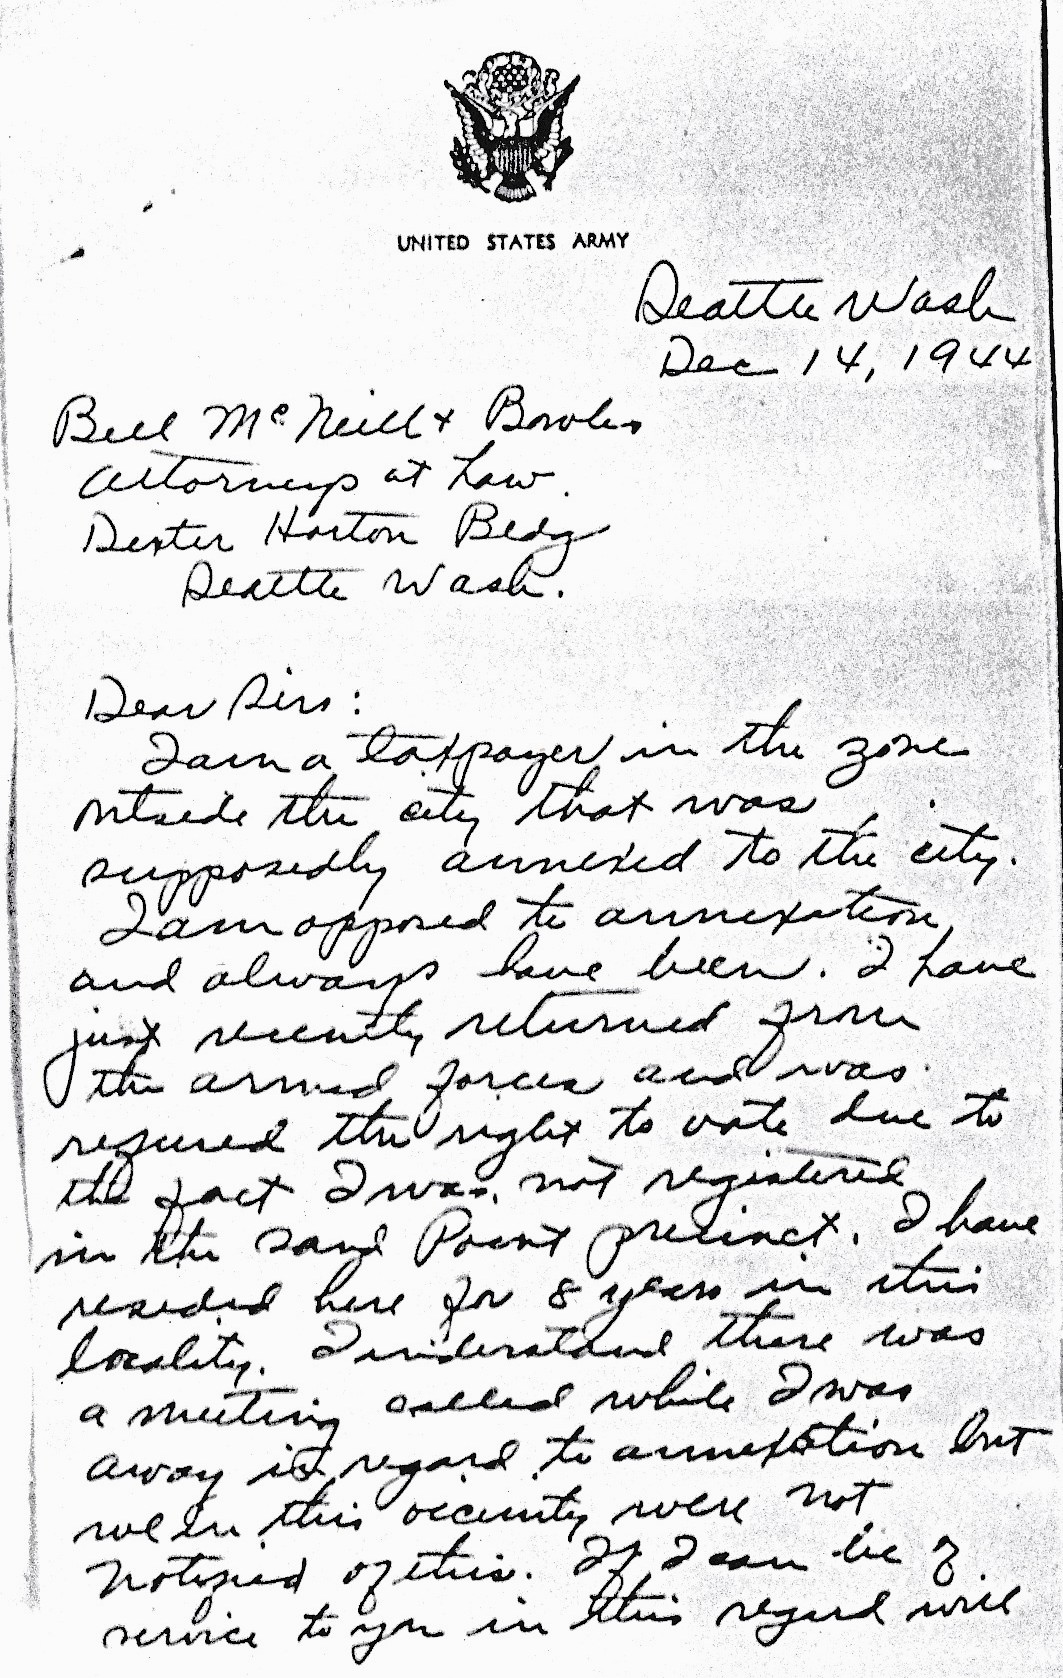 UNITED STATES ARMY
Seattle Wash
Dec 14, 1944
Bell McNeill & Bowles
Attorneys at Law.
Dexter Horton Bldg
Seattle Wash.
Dear Sirs:
I am a taxpayer in the zone
outside the city that was
supposedly annexed to the city.
I am opposed to annexation
and always have been. I have
just recently returned from
the armed forces and was
refused the right to vote due to
the fact I was not registered
in the Sand Point precinct. I have
resided here for 8 years in this
locality. I understand there was
a meeting called while I was
away in regard to annexation but
we in this vicinity were not
notified of this. If I can be of
service to you in this regard will